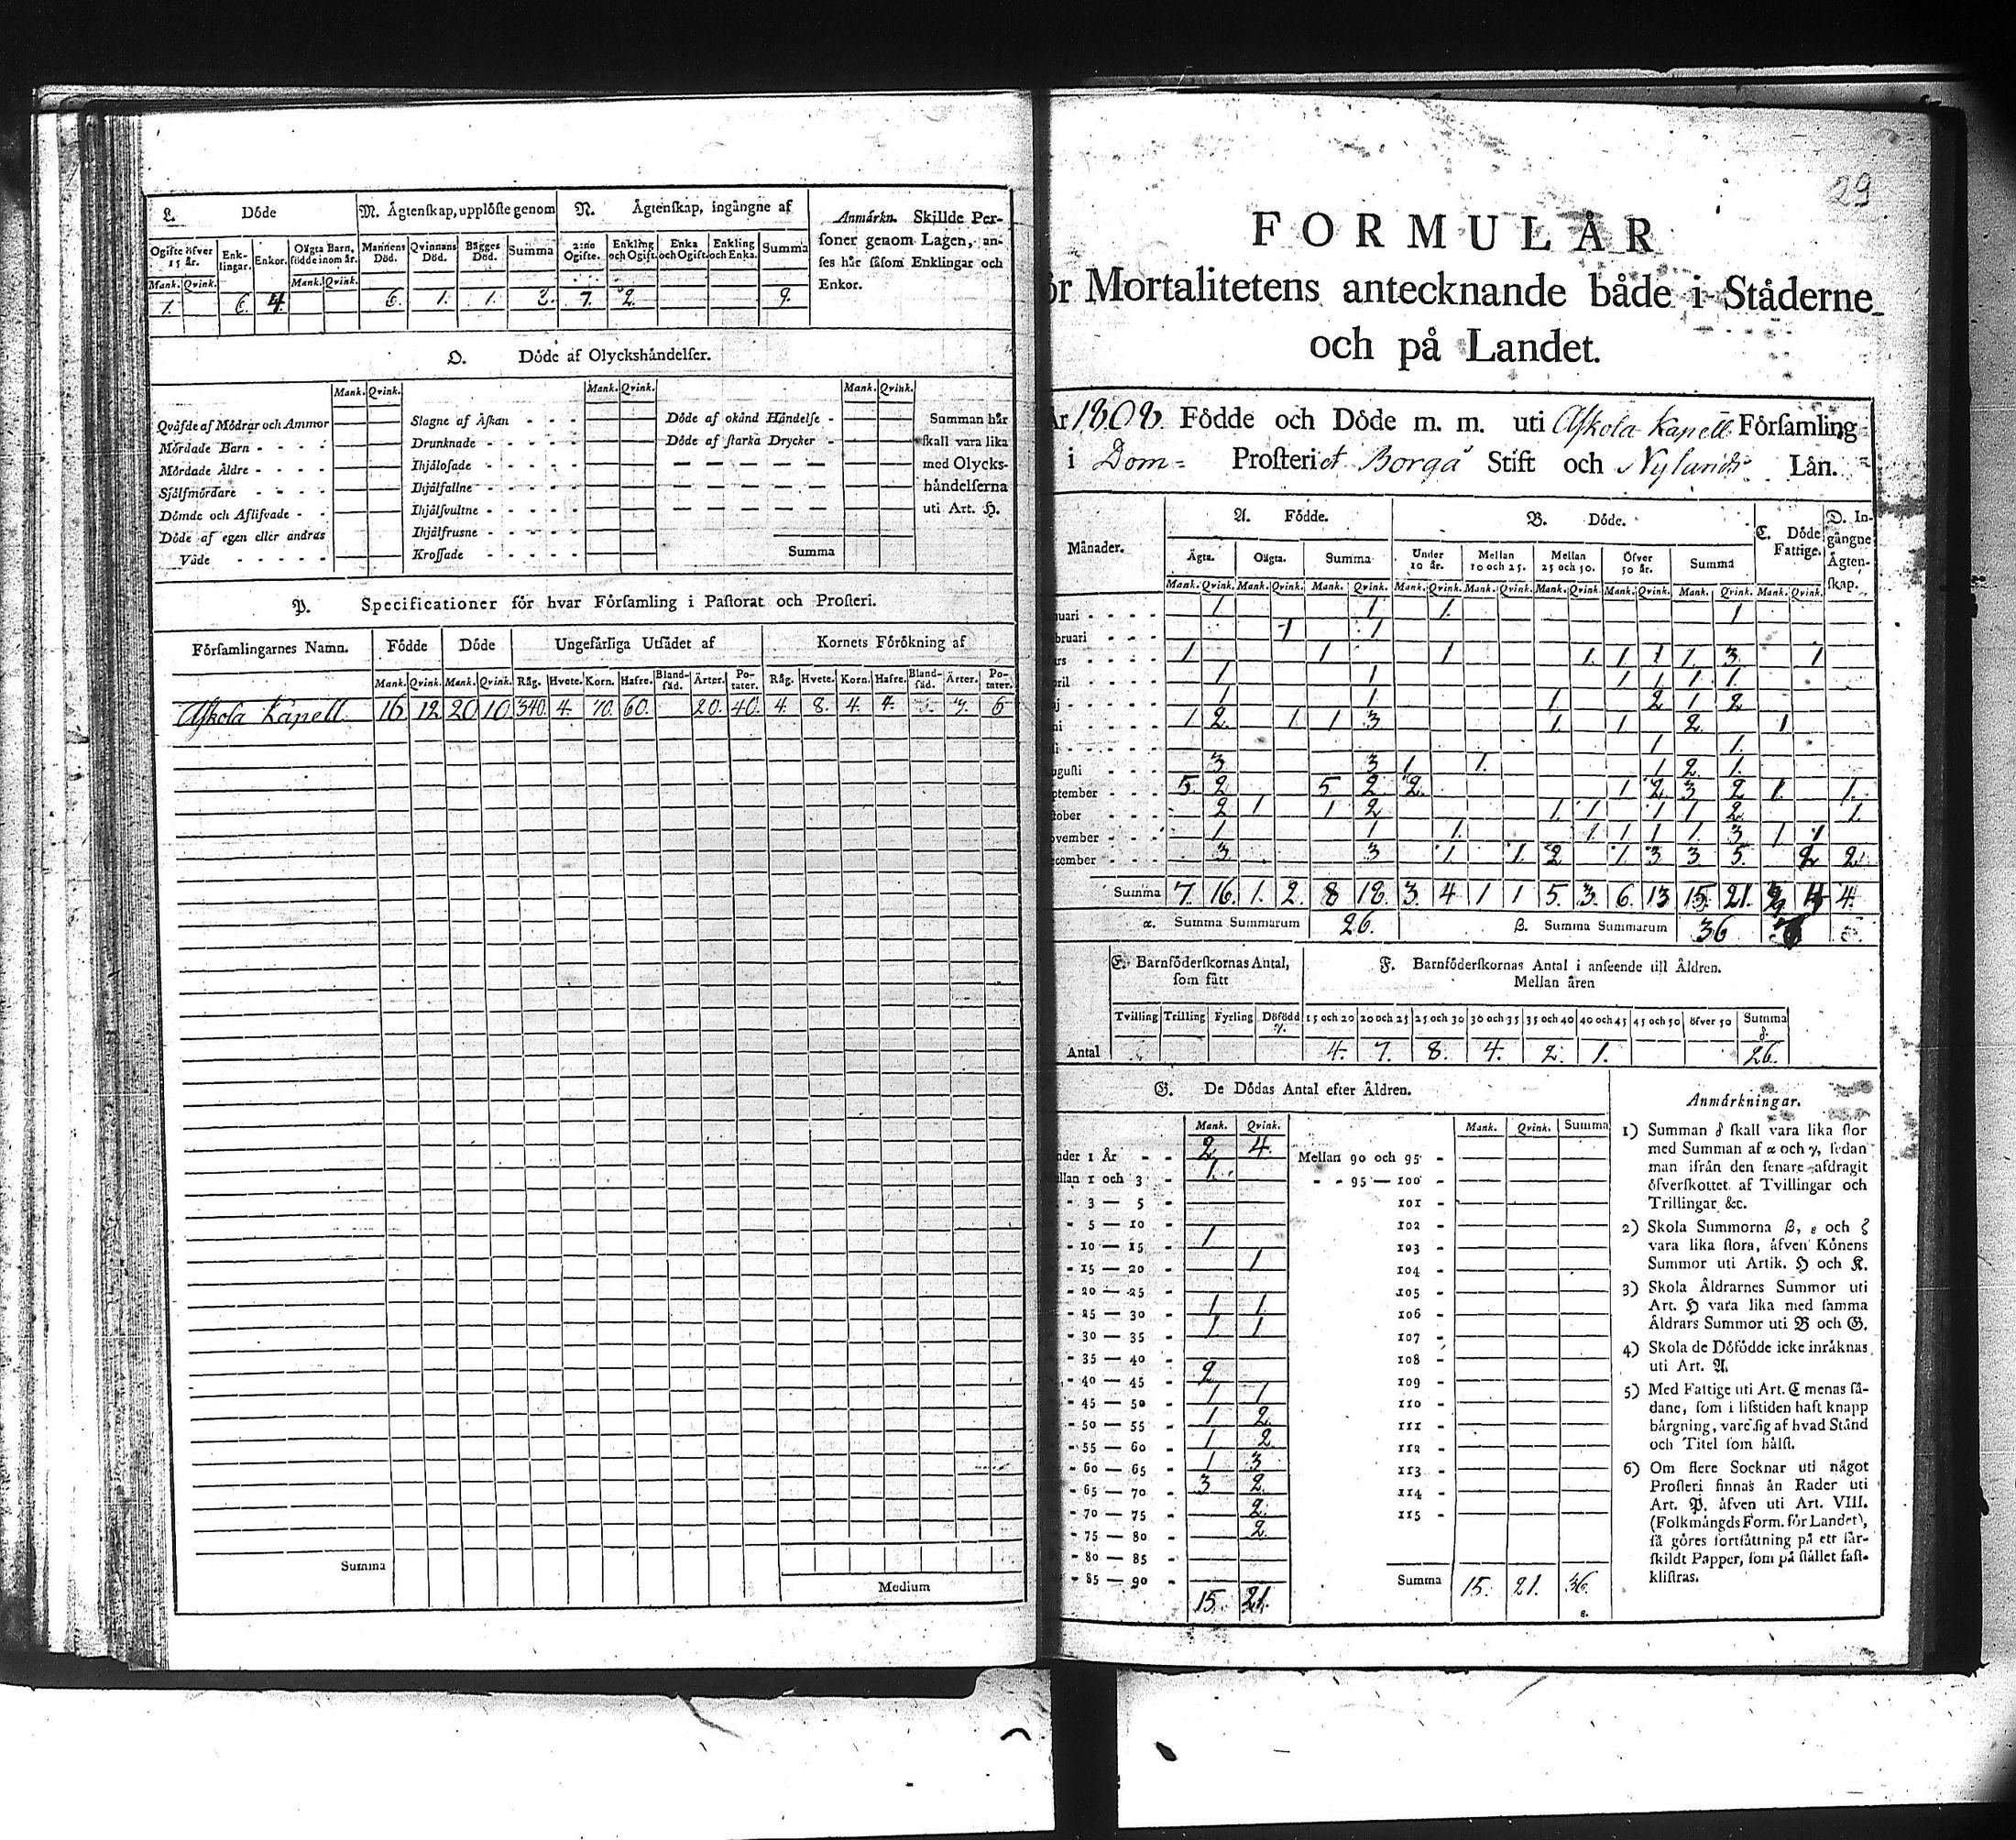 L. Döde
M. Ägtenskap, upplöste genom
N. Ägtenskap, ingångne af
Anmärkn. Skillde Per-
soner genom Lagen, an-
ses här såsom Enklingar och
Enkor.
Ogifte öfver 15 år. Enk-lingar. Enkor. Oägta Barn, födde inom år. Mannens Död. Qvinnans Död. Bägges Död. Summa 2:ne Ogifte. Enkling och Ogift. Enka och Ogift. Enkling och Enka. Summa
Mank. Qvink. Mank. Qvink.
1. 6. 4. 6. 1. 1. 3. 7. 2. 9.
O. Döde af Olyckshändelser.
Mank. Qvink. Mank. Qvink. Mank. Qvink.
Qväfde af Mödrar och Ammor Slagne af Åskan Döde af okänd Händelse Summan här
Mördade Barn Drunknade Döde af starka Drycker skall vara lika
Mördade Äldre Ihjälosade med Olycks-
Självmördare Ihjälfallne händelserna
Dömde och Aflifvade Ihjälsvultne uti Art. H.
Döde af egen eller andras Ihjälfrusne
Våde Krossade Summa
P. Specificationer för hvar Församling i Pastorat och Prosteri.
Församlingarnes Namn. Födde Döde Ungefärliga Utsädet af Kornets Förökning af
Mank. Qvink. Mank. Qvink. Råg. Hvete. Korn. Hafre. Bland-säd. Ärter. Po-tater. Råg. Hvete. Korn. Hafre. Bland-säd. Ärter. Po-tater.
Askola Kapell 16 12 20 10 340. 4. 70. 60. 20. 40. 4. 8. 4. 4. 3. 6
Summa
Medium
29
FORMULÄR
ör Mortalitetens antecknande både i Städerne
och på Landet.
År 1808. Födde och Döde m. m. uti Askola Kapell Församling
i Dom= Prosteriet Borgå Stift och Nylands Län.
Månader. A. Födde. B. Döde. C. Döde Fattige. D. In-gångne Ägten-skap.
Ägta. Oägta. Summa Under 10 år. Mellan 10 och 25. Mellan 25 och 50. Öfver 50 år. Summa
Mank. Qvink. Mank. Qvink. Mank. Qvink. Mank. Qvink. Mank. Qvink. Mank. Qvink. Mank. Qvink. Mank. Qvink. Mank. Qvink.
nuari 1 1 1. 1
bruari 1 1
rs 1 1 1 1. 1 1 1. 3. 1
pril 1 1 1 1 1 1.
aj 1 1 1 2 1 2
ni 1 2. 1 1 3 1. 1 2. 1
li 1 1.
ugusti 3 3 1. 1. 1 2 1.
ptember 5. 2 5 2 2. 1 2 3 2 1. 1.
tober 2 1 1 2 1. 1 1 1 2. 1.
ovember 1 1 1. 1. 1 1 1. 3 1 1
ecember 3 3 1 1. 2 1. 3 3 5. 2 2.
Summa 7. 16. 1. 2. 8 18. 3. 4 1 1 5. 3. 6. 13 15. 21. 4 4.
α. Summa Summarum 26. β. Summa Summarum 36
E. Barnföderskornas Antal, som fått
F. Barnföderskornas Antal i anseende till Åldren.
Mellan åren
Tvilling Trilling Fyrling Döfödd γ. 15 och 20 20 och 25 25 och 30 30 och 35 35 och 40 40 och 45 45 och 50 öfver 50 Summa δ
Antal 4. 7. 8. 4. 2. 1. 26.
G. De Dödas Antal efter Åldren.
Mank. Qvink. Mank. Qvink. Summa
nder 1 År 2 4. Mellan 90 och 95
llan 1 och 3 1. 95 — 100
3 — 5 101
5 — 10 102
10 — 15 1 103
15 — 20 1 104
20 — 25 105
25 — 30 1 1. 106
30 — 35 1 1 107
35 — 40 108
40 — 45 2 109
45 — 50 1 1 110
50 — 55 1 2. 111
55 — 60 1 2 112
60 — 65 1 3 113
65 — 70 3 2. 114
70 — 75 2. 115
75 — 80 2.
80 — 85
85 — 90 Summa 15. 21. 36. ε.
15. 21.
Anmärkningar.
1) Summan δ skall vara lika stor
med Summan af α och γ, sedan
man ifrån den senare afdragit
öfverskottet af Tvillingar och
Trillingar &c.
2) Skola Summorna β, ε och ζ
vara lika stora, äfven Könens
Summor uti Artik. H och K.
3) Skola Åldrarnes Summor uti
Art. H vara lika med samma
Åldrars Summor uti B och G.
4) Skola de Döfödde icke inräknas
uti Art. A.
5) Med Fattige uti Art. C menas så-
dane, som i lifstiden haft knapp
bärgning, vare sig af hvad Stånd
och Titel som hälst.
6) Om flere Socknar uti något
Prosteri finnas än Rader uti
Art. P. äfven uti Art. VIII.
(Folkmängds Form. för Landet),
så göres fortsättning på ett sär-
skildt Papper, som på stället fast-
klistras.